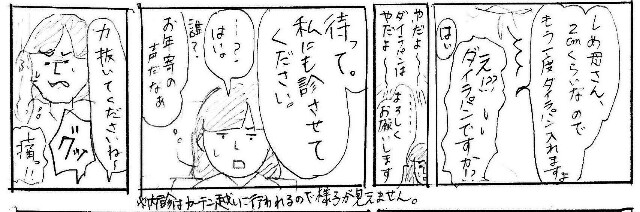 しめ母さん、
2cmくらいなので
もう一度ダイラパン入れますよ
はい
え!??
ダイラパンですか!?
やだよ〜
ダイラパンは
やだよ〜
よろしく
お願いします
待って。
私にも診させて
ください。
…?
はい。
誰?
お年寄の
声だなぁ
力抜いてくださいね〜
グッ
痛っ!!
内診はカーテン越しに行われるので様子が見えません。